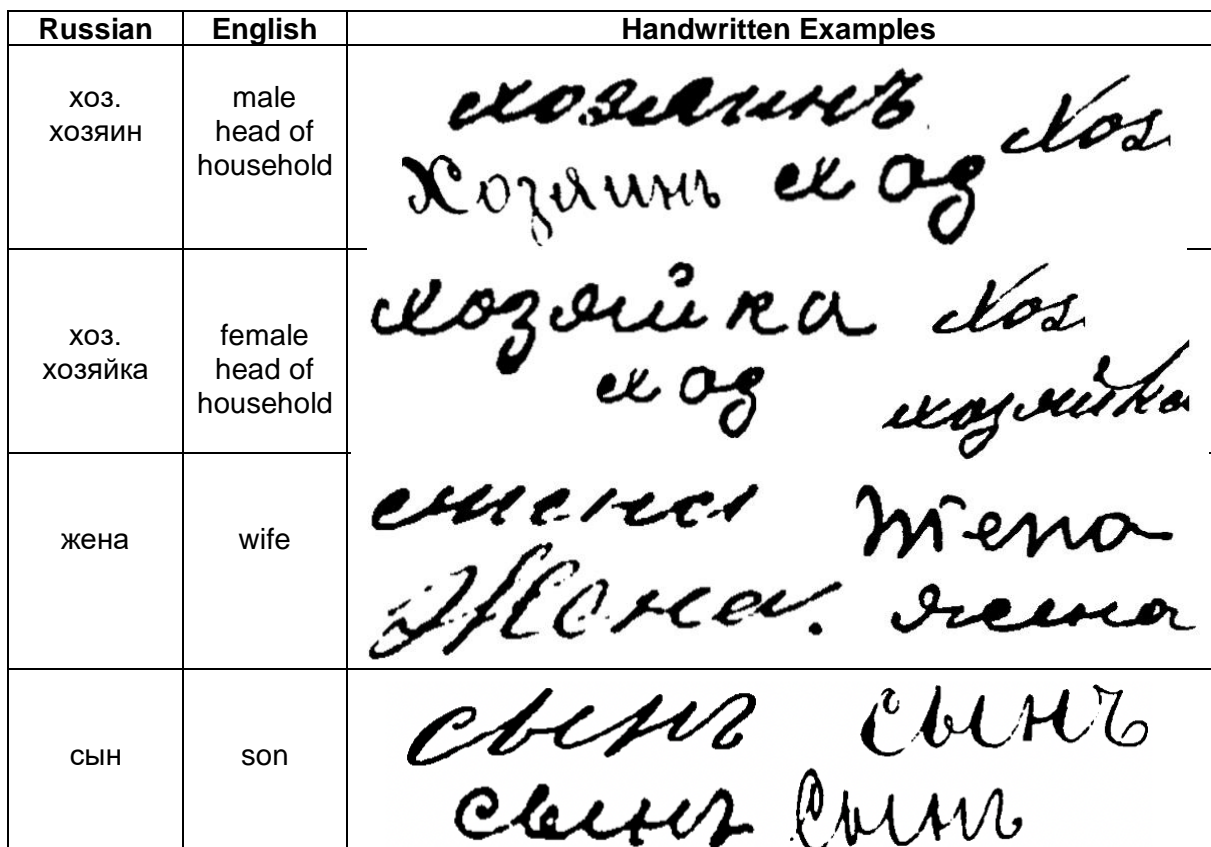 Russian English Handwritten Examples
хоз.
хозяин
male
head of
household
хозяинъ
Хоз.
Хозяинъ хоз
хоз.
хозяйка
female
head of
household
Хозяйка Хоз.
хоз
хозяйка
жена
wife
жена Жена
Жена. жена
сын
son
сынъ сынъ
сынъ Сынъ